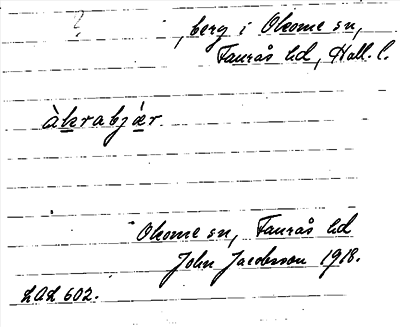 ?, berg i Okome sn,
Faurås hd, Hall. l.
àkrabjǽr.
Okome sn, Faurås hd
John Jacobsson 1918.
LAL 602.